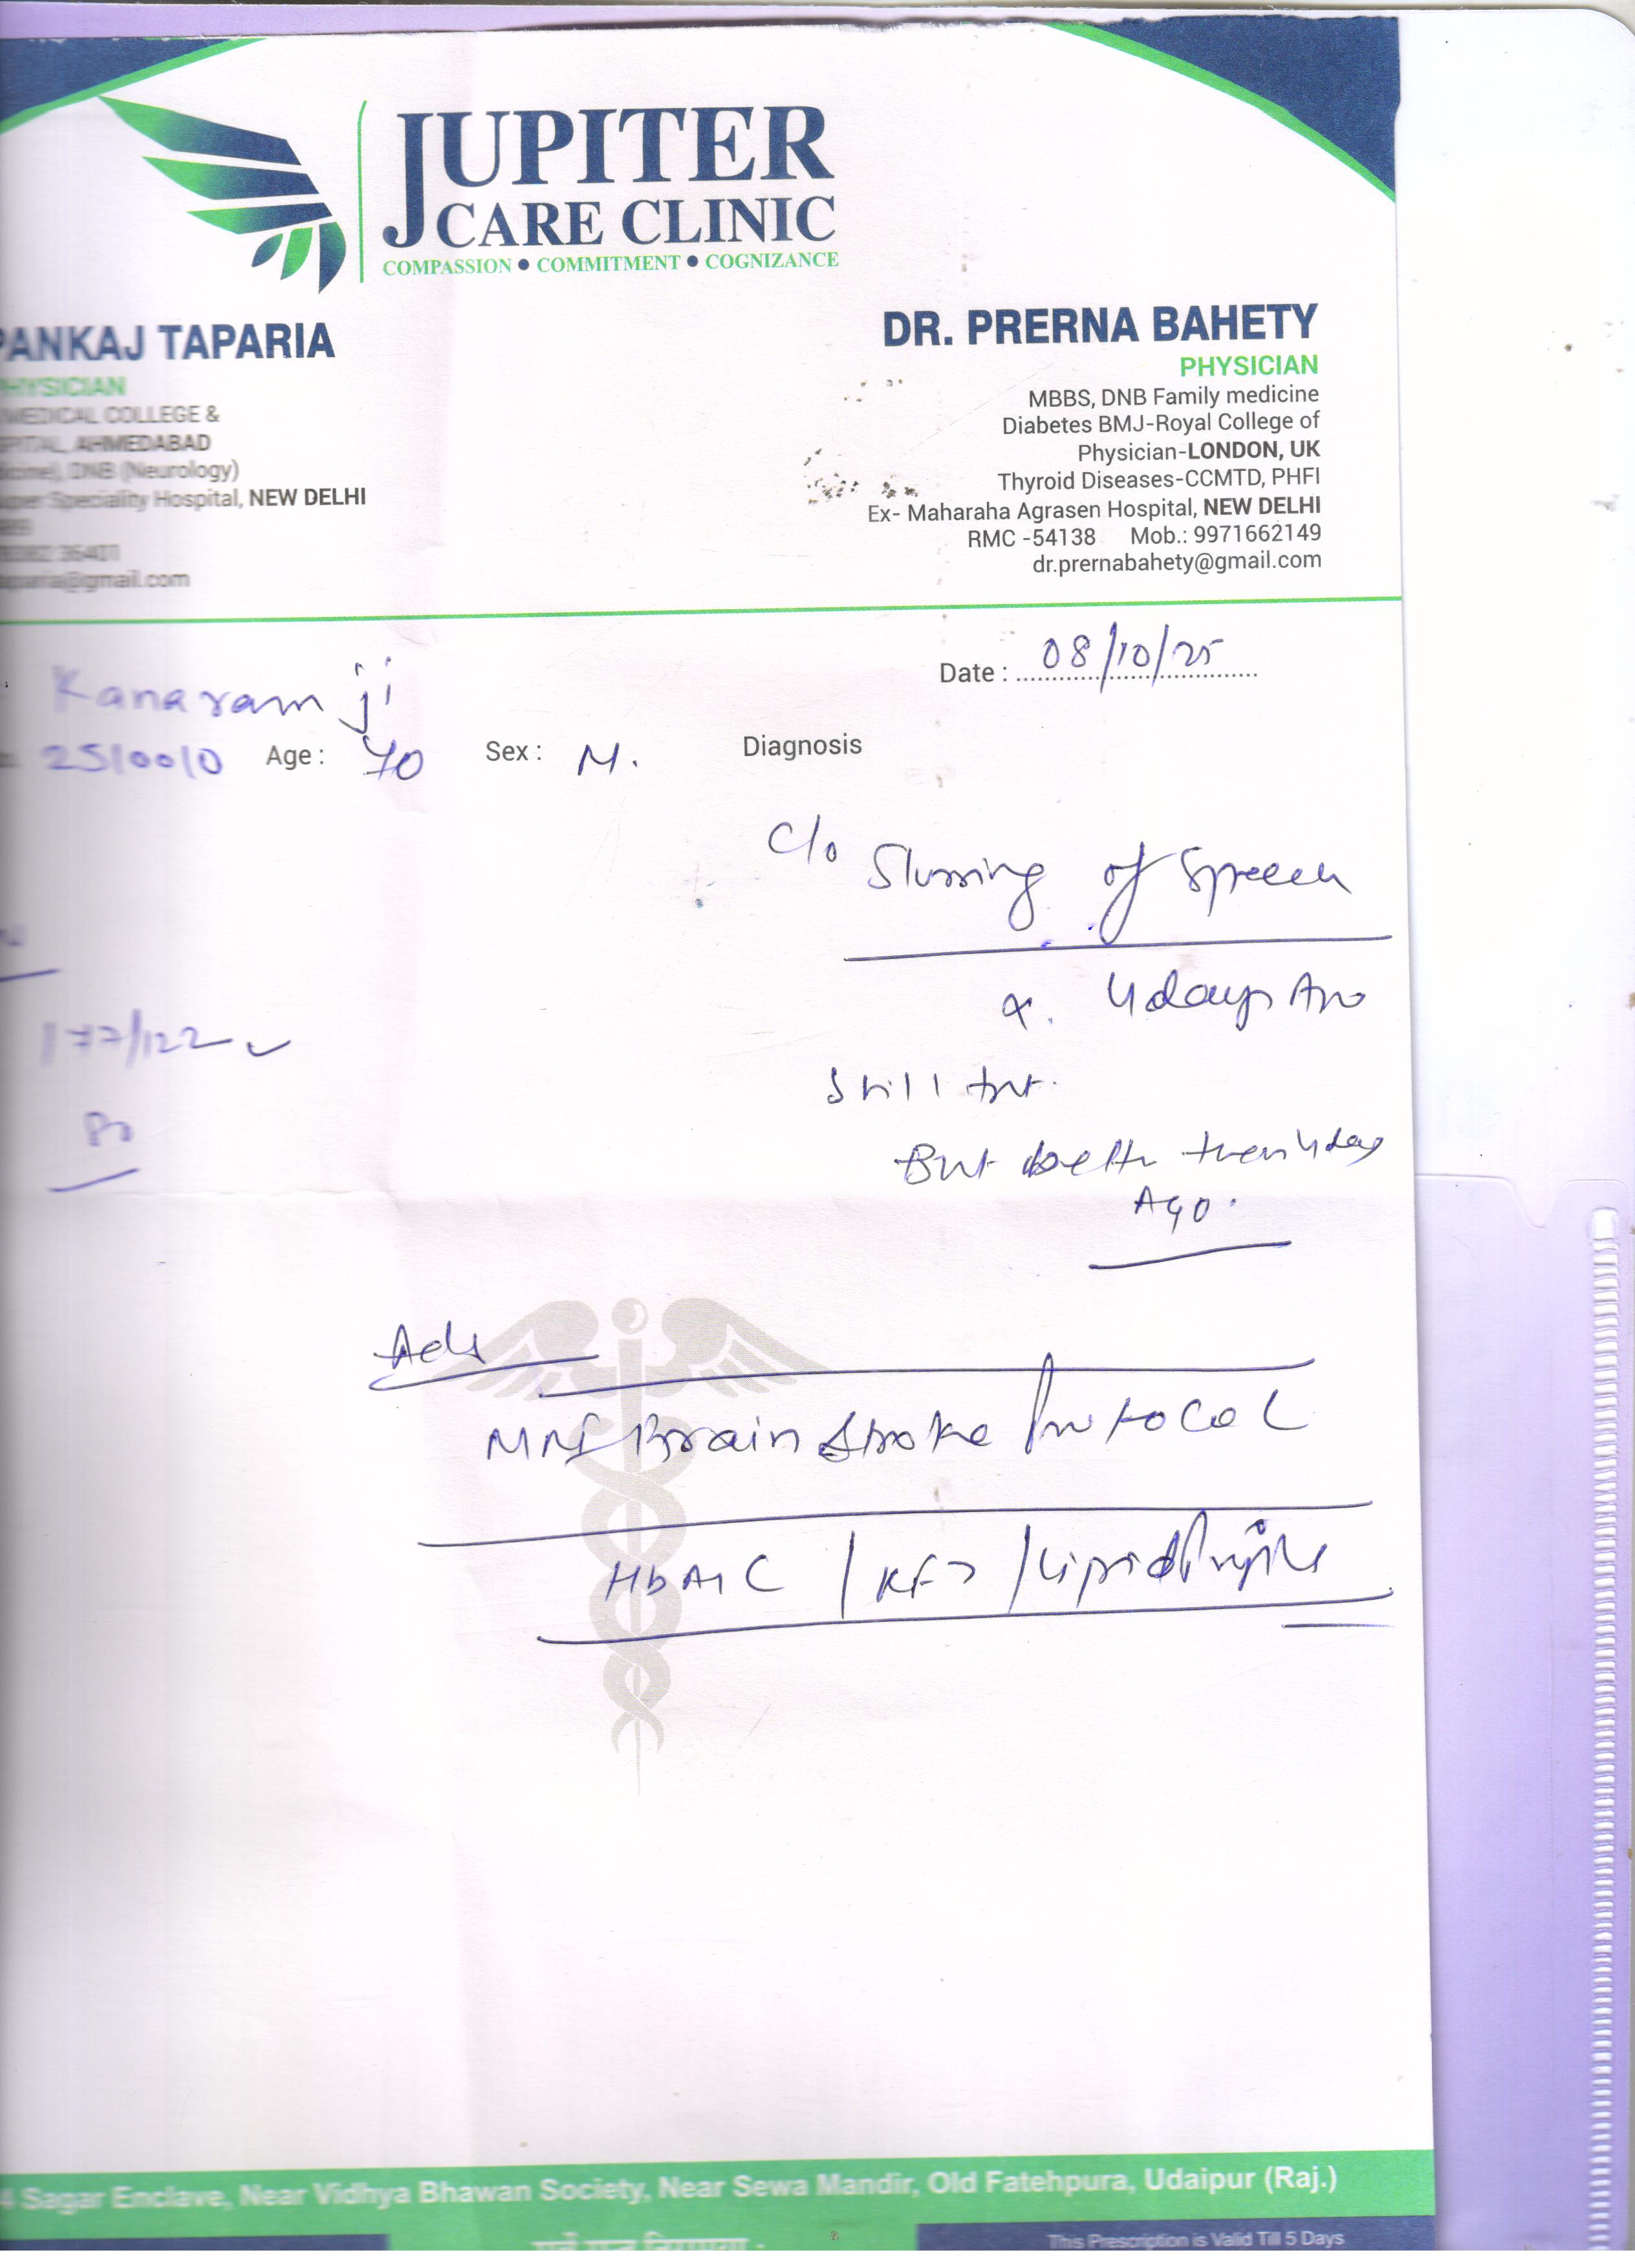 JUPITER
CARE CLINIC
COMPASSION ● COMMITMENT ● COGNIZANCE
PANKAJ TAPARIA
PHYSICIAN
MEDICAL COLLEGE &
AHMEDABAD
DNB (Neurology)
Speciality Hospital, NEW DELHI
@gmail.com
DR. PRERNA BAHETY
PHYSICIAN
MBBS, DNB Family medicine
Diabetes BMJ-Royal College of
Physician-LONDON, UK
Thyroid Diseases-CCMTD, PHFI
Ex- Maharaha Agrasen Hospital, NEW DELHI
RMC -54138 Mob.: 9971662149
dr.prernabahety@gmail.com
Date : 08/10/25
Kanaram ji
Age : 70 Sex : M. Diagnosis
C/o Slurring of Speech
4 days
177/122
80
Still
But better than 4 day
Ago.
Adv
MRI Brain Stroke Protocol
HbA1C / KFT / Lipid Profile
Sagar Enclave, Near Vidhya Bhawan Society, Near Sewa Mandir, Old Fatehpura, Udaipur (Raj.)
This Prescription is Valid Till 5 Days